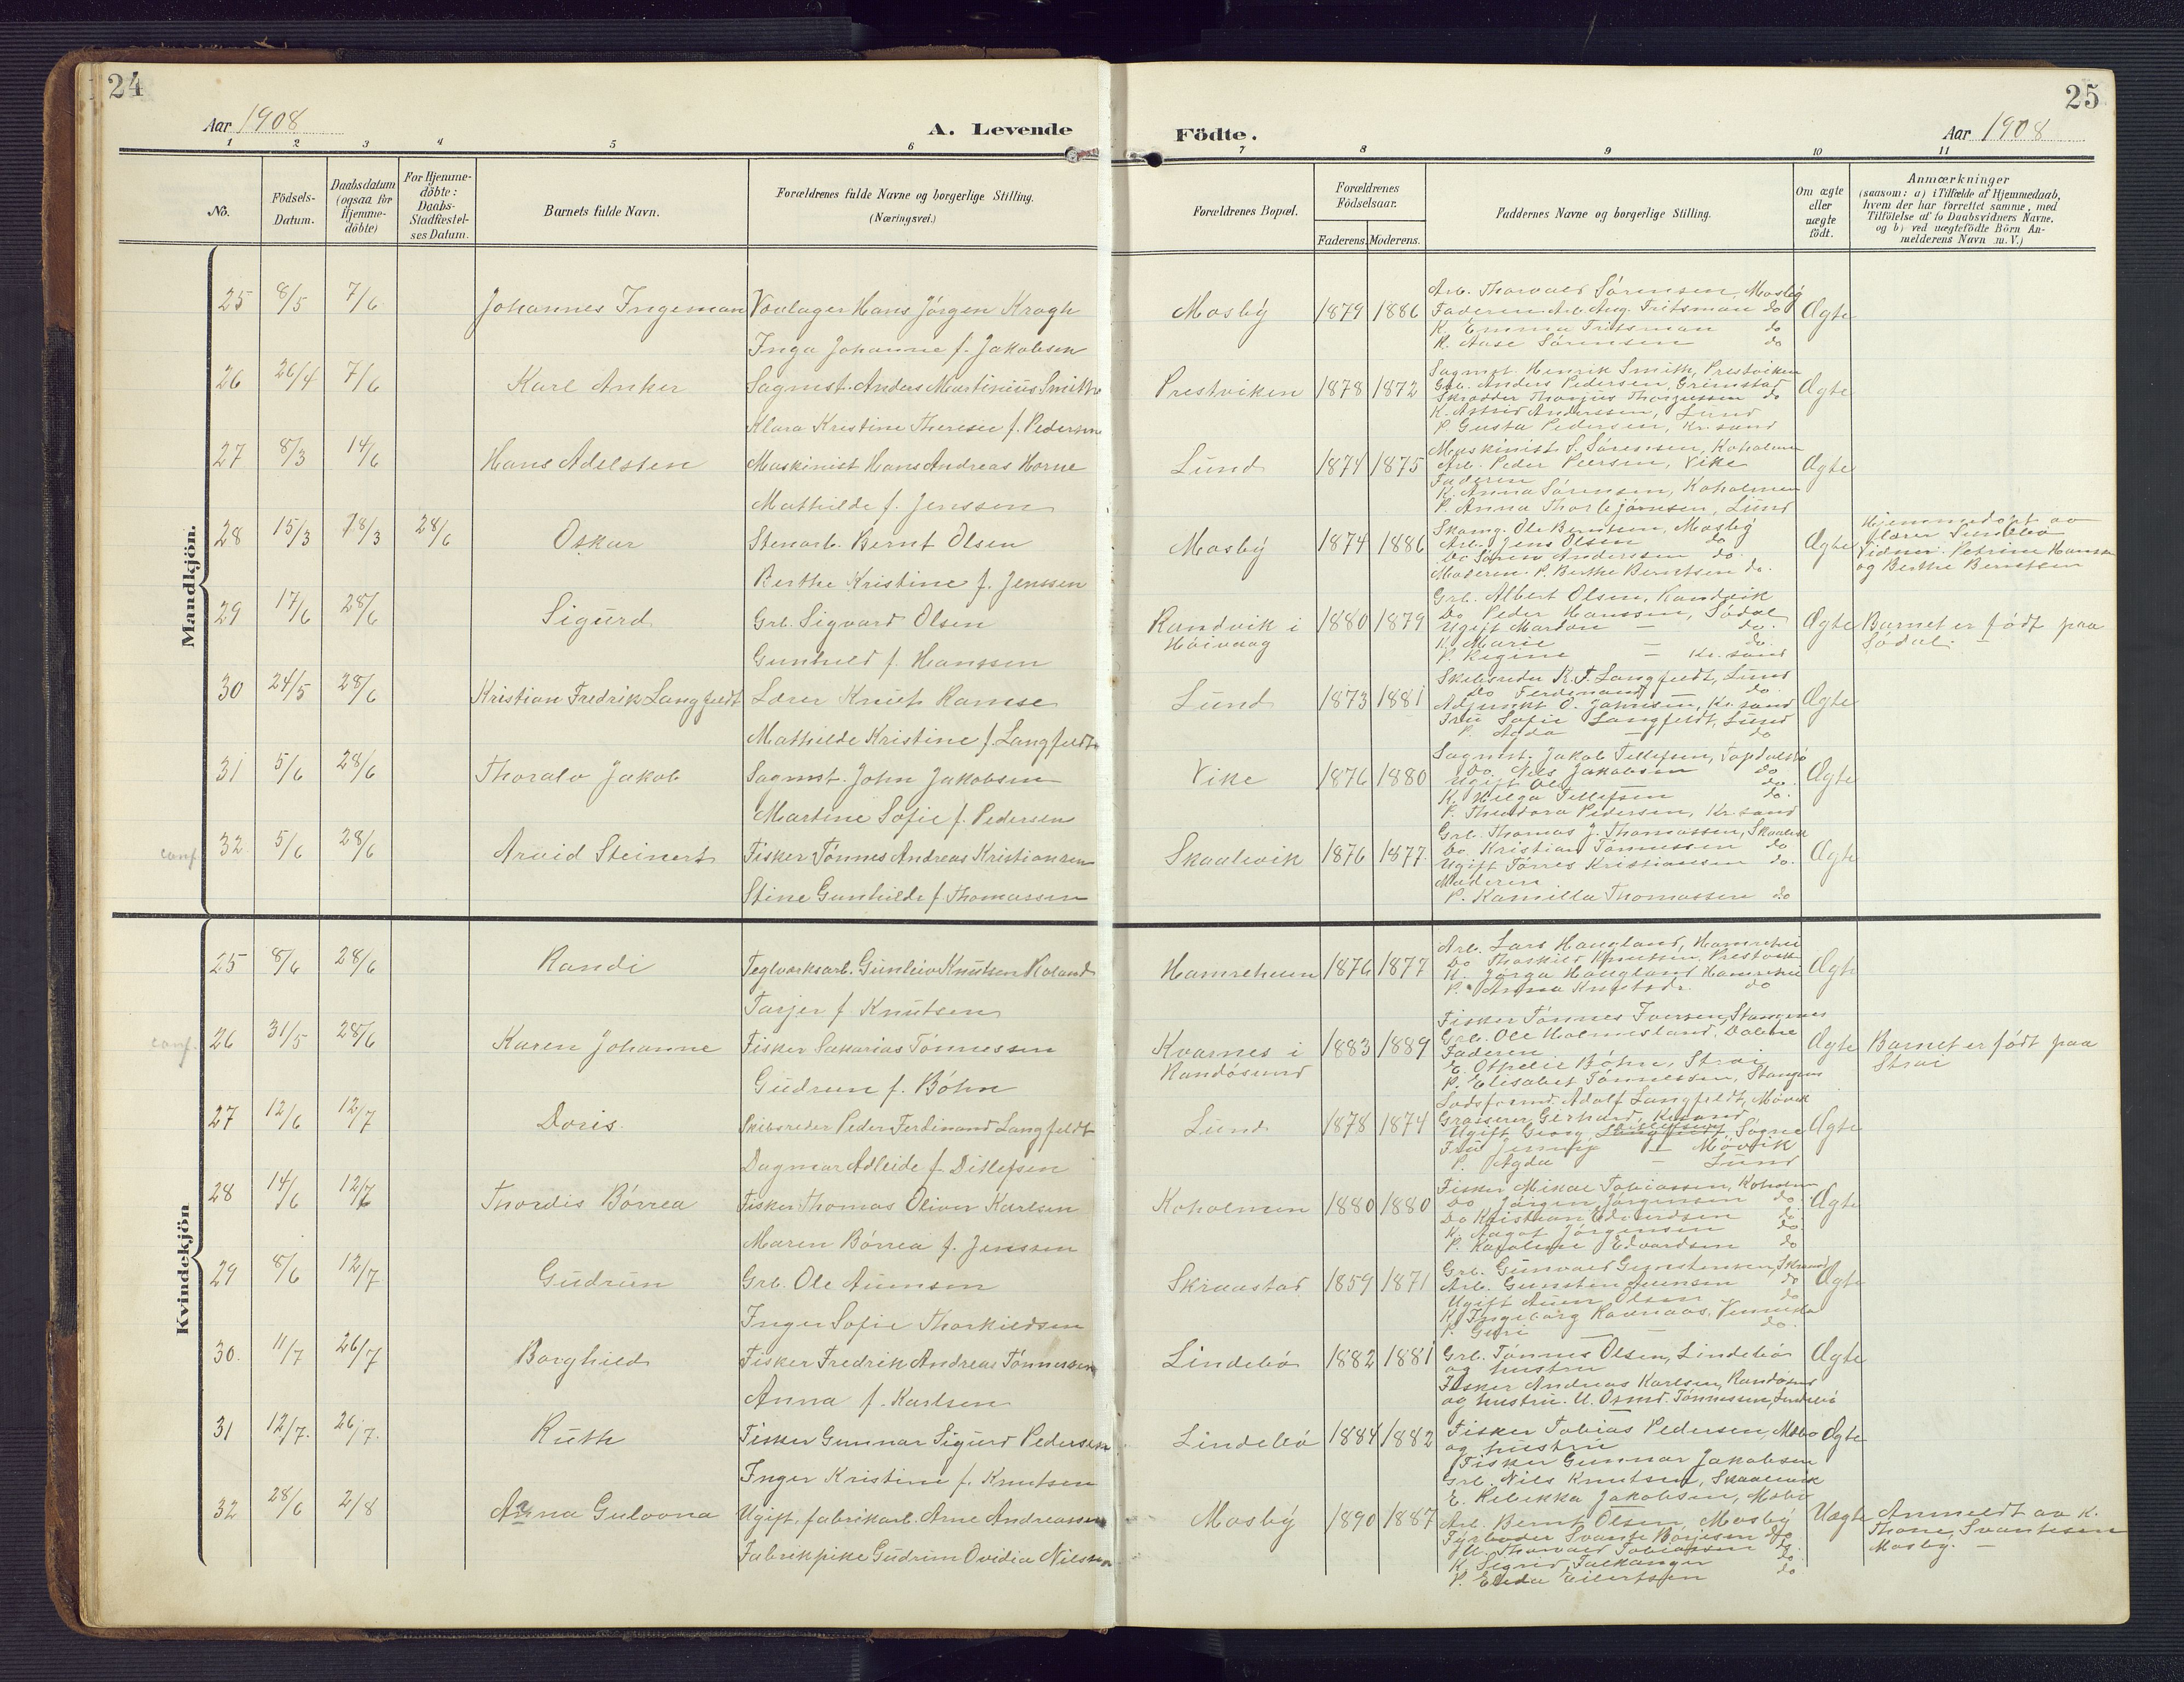 24
Aar 1908
A. Levende
1 2 3 4 5 6
No.
Födsels-Datum.
Daabsdatum (ogsaa for Hjemme-döbte)
For Hjemme-döbte: Daabs-Stadfæstel-ses Datum.
Barnets fulde Navn.
Forældrenes fulde Navne og borgerlige Stilling.
(Næringsvei.)
Mandkjön.
25 8/5 7/6 Johannes Ingeman Hans Jörgen Kragh
Inga Johanne f. Jakobsen
26 26/4 7/6 Karl Anker Sagmst. Anders Martinius Smith
Klara Kristine Therese f. Pedersen
27 8/3 14/6 Hans Adelsten Maskinist Hans Andreas Horne
Mathilde f. Jenssen
28 15/3 18/3 28/6 Oskar Stenarb. Bernt Olsen
Berthe Kristine f. Jenssen
29 17/6 28/6 Sigurd Grb. Sigvard Olsen
Gunhild f. Hanssen
30 24/5 28/6 Kristian Fredrik Langfeldt Lærer Knut Ramse
Mathilde Kristine f. Langfeldt
31 5/6 28/6 Thoralv Jakob Sagmst. John Jakobsen
Martine Sofie f. Pedersen
conf. 32 5/6 28/6 Arvid Steinert Fisker Tönnes Andreas Kristiansen
Stine Gunhilde f. Thomassen
Kvindekjön
25 8/6 28/6 Randi Teglverksarb. Gunleiv Knutsen Roland
Tarjer f. Knutsen
conf. 26 31/5 28/6 Karen Johanne Fisker Sakarias Tönnessen
Gudrun f. Böhn
27 12/6 12/7 Doris. Skibsreder Peder Ferdinand Langfeldt
Dagmar Adleide f. Ditlefsen
28 14/6 12/7 Thordis Börrea Fisker Thomas Oliver Karlsen
Maren Börrea f. Jenssen
29 8/6 12/7 Gudrun Grb. Ole Aunsen
Inger Sofie Thorkildsen
30. 11/7 26/7 Borghild Fisker Fredrik Andreas Tönnessen
Anna f. Karlsen
31 12/7. 26/7. Ruth Fisker Gunnar Sigurd Pedersen
Inger Kristine f. Knutsen
32 28/6 2/8 Anna Gulovna Ugift. fabrikarb. Arne Andreassen
Fabrikpike Gudrun Ovidia Nilsen
25
Födte.
Aar 1908
7 8 9 10 11
Forældrenes Bopæl.
Forældrenes Födselsaar.
Faderens. Moderens.
Faddernes Navne og borgerlige Stilling.
Om ægte eller uægte födt.
Anmærkninger
(saasom: a) i Tilfælde af Hjemmedaab,
hvem der har forrettet samme, med
Tilföielse af to Daabsvidners Navne,
og b) ved uægtefödte Börn An-
melderens Navn m. V.)
Arb. Thorvald Sörensen, Mosbý
Mosbý 1879 1886 Faderen Arb. Aug. Fritsman do Ægte
K. Emma Fritsman do
K. Aase Sörensen do
Sagmst. Henrik Smith, Prestviken
Prestviken 1878 1872 Grb. Anders Pedersen, Grimstad Ægte
Skrædder do
K. Astrid Anderssen, Lund
P. Gusta Pedersen, Kr.sand
Maskinist S. Sörensen, Koholmen
Lund 1874 1875 Arb. Peder Peersen, Vike Ægte
Faderen
K. Anna Sörensen, Koholmen
P. Anna Thorbjörnsen, Lund
Ole Berntsen, Mosbý
Mosbý 1874 1886 Arb. Jens Olsen do Ægte
Do Sören Anderssen do
Moderen. P. Berthe Berntsen do.
Hjemmedöbt av
Lærer Lindebö
Vidner: Petrine Hansen
og Berthe Berntsen
Grb. Albert Olsen, Randvik
Randvik i Höivaag 1880 1879 Do Peder Hanssen, Södal Ægte
Ugift Mardon — do.
K. Marie — do.
P. Regine — Kr.sand
Barnet er födt paa
Södal.
Skibsreder K. F. Langfeldt, Lund
Lund 1873 1881 Do Ferdinand — do. Ægte
Adjunkt O. Kr.sand
Fru Sofie Langfeldt, Lund
P. Agda — do
Sagmst. Jakob Tellefsen,
Vike 1876 1880 Do. Nils Jakobsen do Ægte
Ugift Ole — do.
K. Helga Tellefsen do.
P. Theodora Pedersen, Kr.sand
Grb. Thomas J. Thomassen, Skaalevik
Skaalevik 1876 1877. Do. Kristian Tönnessen do Ægte
Ugift Törres Kristiansen do.
Moderen
P. Kamilla Thomassen do
Arb. Lars Haugland,
1876 1877 Do Thorkild Knutsen, Prestvik Ægte
K. Jörga Haugland
P. Anna Knutsdr. do
Fisker Tönnes Iversen, Stangenes
Kvarnes i Randösund 1883 1889 Grb. Ole Holmesland, Ægte
Faderen
E. Othelie Böhn, Strai
P. Elisabet Tönnessen, Stangenes
Barnet er födt paa
Strai
Lodsformd. Adolf Langfeldt, Mövik
Lund 1878 1874 Grosserer Gerhard, Kr.sand Ægte
Ugift Georg Ditlefsen, Sögne
Fru Jenny — Mövik
P. Agda — Lund
Fisker Mikal Tobiassen, Koholmen
Koholmen 1880 1880 Do Jörgen Jörgensen do Ægte
Do Kristian Edvardsen do.
K. Aagot Jörgensen do.
P. Karoline Edvardsen do
Grb. Gunvald Gunstensen,
Skraastad 1859 1871 Arb. Gunsten Aunsen do Ægte
Ugift Aun Olsen do
K. Ingeborg Ravnaas, Vennesla
P. Guri — do.
Lindebö 1882 1881 Grb. Tönnes Olsen, Lindebö Ægte
og hustru
Fisker Andreas Karlsen, Randösund
og hustru. U. Osmd. Tönnessen, Lindebö
Lindebö 1884 1882 Fisker Tobias Pedersen, Ægte
og hustru
Fisker Gunnar Jakobsen
Grb. Nils Knutsen, Skaalevik
E. Rebekka Jakobsen,
Mosbý 1890 1887 Arb. Bernt Olsen, Mosbý Uægte
Fyrböder Svante Börjesen do
U. Thorvald Tobiassen do.
K. Sigrid Falkanger do
P. Elida Eilertsen do
Anmeldt av K.
Thone Svantesen
Mosby. —